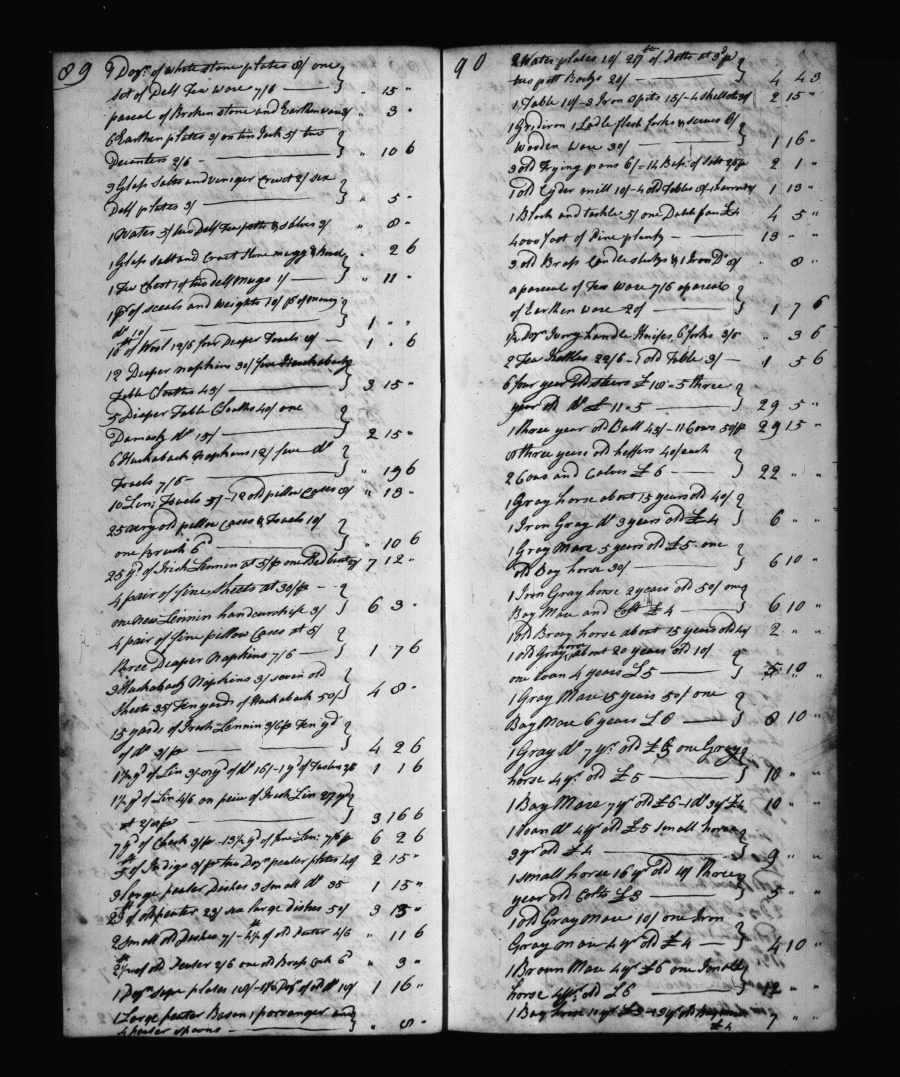 89
9 Dozn. of white stone plates 8/ one
set of Delf Tea ware 7/6 — " 15 "
parcel of Broken stone and Earthenware " 3 "
6 Earthen plates 3/ on two Jack 5/ two
Decanters 2/6 — " 10 6
3 Glass Salts and viniger Crewet 2/ six
Delf plates 3/ — " 5 "
1 Waters 5/ two Delf Teapotts & salvers 3/ " 8 "
1 Glass salt and Crewet stone mugg & " 2 6
1 Tea Chest 10/ two delf Mugs 1/ — " 11 "
1 pr. of sceals and Weights 10/ pr. of money
do. 10/ — 1 " "
10 lb of Wool 12/6 four Deaper Towels 8/ — 1 " 6
12 Deaper napkins 30/ five Huckaback
Table Cloaths 45/ — 3 15 "
5 Diaper Table Cloaths 40/ one
Damask do. 15/ — 2 15 "
6 Huckaback Napkins 12/ five do.
Towels 7/6 — " 19 6
10 Lin: Towels 5/ - 12 old pillow Cases 8/ " 13 "
25 very old pillow Cases & Towels 10/
one Brush 6d — " 10 6
25 yd. of Irish Linnin at 5/p one Bed 7 12 "
4 pair of fine Sheets at 30/p —
one new Linnin handcurchif 3/ 6 3 "
4 pair of fine pillow Cases at 5/
three Deaper Napkins 7/6 — 1 7 6
3 Huckaback Napkins 3/ seven old
Sheets 35/ Ten yards of Huckaback 50/ 4 8 "
15 yards of Irish Linnin 3/6p Ten yd
of do. 3/p — 4 2 6
1½ yd. of Lin 3/ yd. of do. 16/ - 1 yd. of 1 1 6
1½ yd. of Lin 4/6 on peice of Irish Lin 27 yd
at 2/ p — 3 16 6
7 yd. of Check 3/p - 13½ yd. of fine Lin: 7/ p 6 2 6
5 lb of Indigo 3/p two Dozn. peater plates 40/ 2 15 "
3 large peater Dishes 3 small do. 35 1 15 "
23 lb of old peater 23/ six large dishes 50/ 3 13 "
2 small old Dishes 7/ - 4½ lb of old Peater 4/6 " 11 6
2½ lb of old Peater 2/6 one old Brass Cock 6d " 3 "
1 Dozn. supe plates 18/ - Dozn. of old do. 18/ 1 16 "
1 Large peater Bason 1 porranger and
4 peater spoons — " 8 "
90
2 Water plates 10/ 27 lb of Potts at 3d p
two pott Backs 20/ — 4 4 3
1 Table 10/ - 3 Iron Spits 15/ - 4 skellets 2 15 "
1 Gridiron 1 Ladle flesh forks & scures 6/
Wooden Ware 30/ — 1 16 "
3 old Frying pans 6/ - 14 Bs. of Salt 2/6 p 2 1 "
1 old Cyder mill 10/ - 4 old Tables 8/ 1 13 "
1 Block and tackle 5/ one Dutch fan £4 4 5 "
4000 foot of Pine plank — 13 " "
3 old Brass Candlesticks & 1 Iron Do. 8/ " 8 "
a parcel of Tea Ware 7/6 a parcel
of Earthen ware 20/ — 1 7 6
½ Dozn. Ivory handle Knifes 6 forks 3/6 " 3 6
2 Tea Kettles 22/6 - 1 old Table 3/ — 1 5 6
6 four year Old stiers £18 - 5 three
year old do. £11-5 — 29 5 "
1 three year old Bull 45/ - 11 Cows 50/p 29 15 "
8 three years old heffers 40/ each
2 Cows and Calves £6 — 22 " "
1 Gray horse about 15 years old 40/
1 Iron Gray do. 3 years old £4 6 " "
1 Gray Mare 5 years old £5 - one
old Bay horse 30/ — 6 10 "
1 Iron Gray horse 2 years old 50/ one
Bay Mare and Colt £4 — 6 10 "
1 old Bray horse about 15 years old 40/ 2 " "
1 old Gray horse about 20 years old 10/
one Roan 4 years £5 — 5 10 "
1 Gray Mare 15 years 50/ one
Bay Mare 6 years £6 — 8 10 "
1 Gray do. 7 yr. old £5 one Gray
horse 4 yr. old £5 — 10 " "
1 Bay Mare 7 yr. old £6 - 1 do. 3 yr £4 10 " "
1 Roan do. 4 yr. old £5 small horse
3 yr old £4 — 9 " "
1 small horse 16 yr. old 40/ three
year old Colt £3 — 5 " "
1 old Gray Mare 10/ one Iron
Gray mare 4 yr old £4 — 4 10 "
1 Brown Mare 4 yr. £6 one
horse 4 yr. old £6 — 12 " "
1 Bay horse 10 yr. £3 - 1 3 yr. old
£4 7 " "